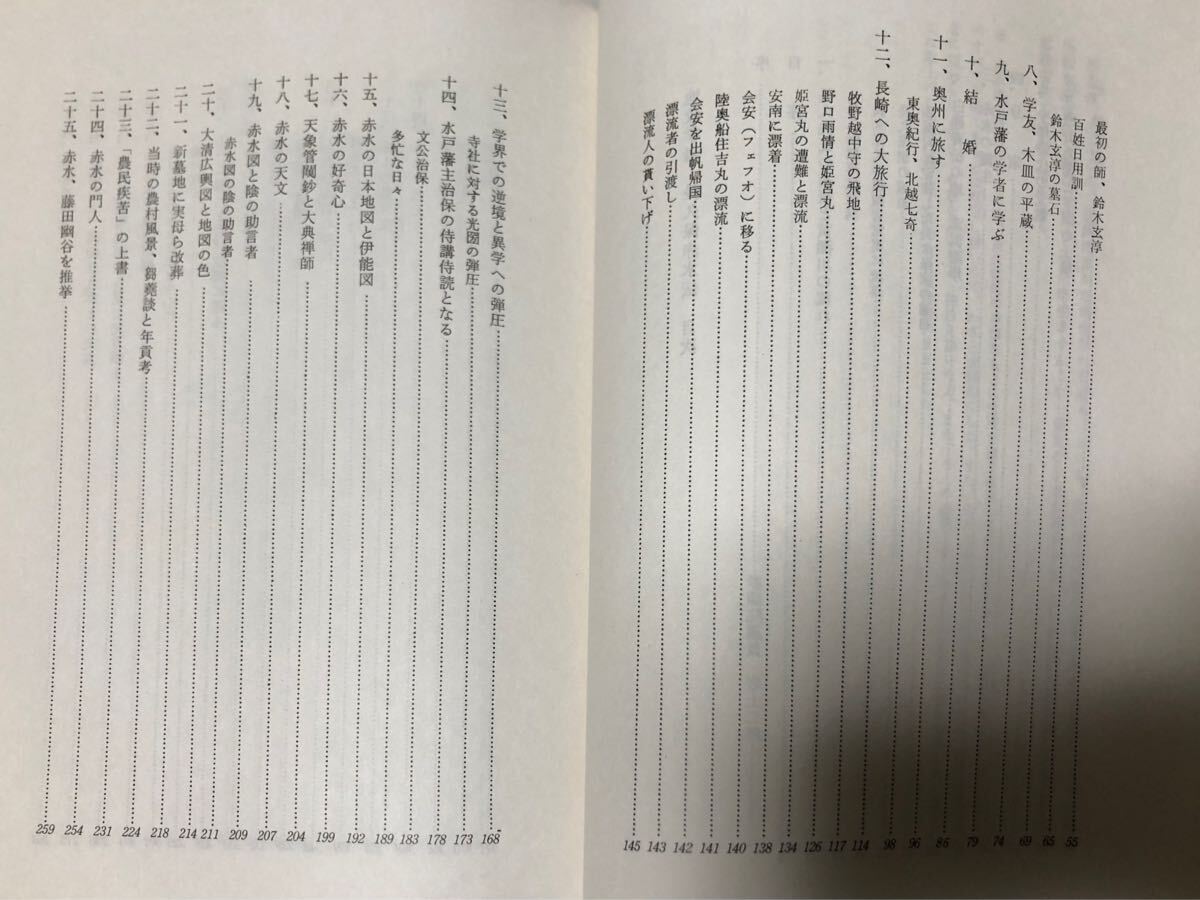 最初の師、鈴木玄淳……55
百姓日用訓……65
鈴木玄淳の墓石……69
八、学友、木皿の平蔵……74
九、水戸藩の学者に学ぶ……79
十、結　婚……86
十一、奥州に旅す……96
東奥紀行、北越七奇……98
十二、長崎への大旅行……114
牧野越中守の飛地……117
野口雨情と姫宮丸……126
姫宮丸の遭難と漂流……134
安南に漂着……138
会安（フェフォ）に移る……140
陸奥船住吉丸の漂流……141
会安を出帆帰国……142
漂流者の引渡し……143
漂流人の貰い下げ……145
十三、学界での逆境と異学への弾圧……168
寺社に対する光圀の弾圧……173
十四、水戸藩主治保の侍講侍読となる……178
文公治保……183
多忙な日々……189
十五、赤水の日本地図と伊能図……192
十六、赤水の好奇心……199
十七、天象管闚鈔と大典禅師……204
十八、赤水の天文……207
十九、赤水図と陰の助言者……209
赤水図の陰の助言者……211
二十、大清広輿図と地図の色……214
二十一、新墓地に実母ら改葬……218
二十二、当時の農村風景、芻蕘談と年貢考……224
二十三、「農民疾苦」の上書……231
二十四、赤水の門人……254
二十五、赤水、藤田幽谷を推挙……259